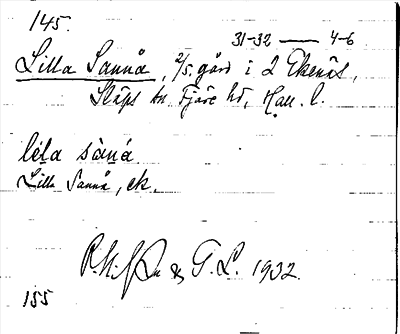 145.
31-32 — 4-6
Lilla Sannå, 2/5. gård i 2 Ekenäs,
Släps sn. Fjäre hd, Hall. l.
léla sàná
Lilla Sannå, ek.
& G. L. 1932.
155